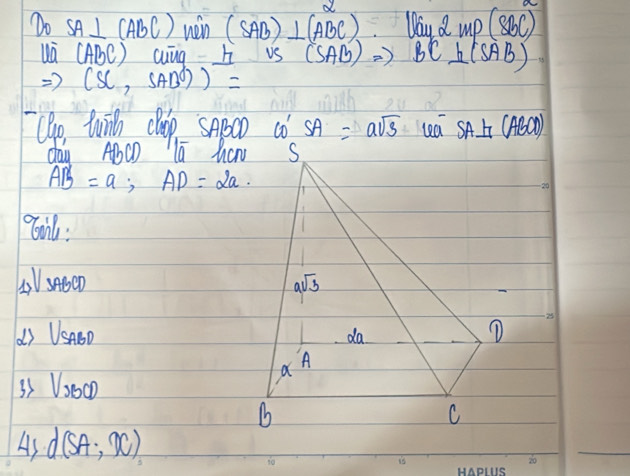 Do SA ⊥ (ABC) nên (SAB) ⊥ (ABC). Vậy 2 mp (SBC)
Và (ABC) cùng ⊥ vs (SAB) => BC ⊥ (SAB)
=> (SC, SAB)) =
- Cho hình chóp SABCD có SA = a√3 và SA ⊥ (ABCD)
đáy ABCD là hcn
AB = a; AD = 2a.
S
Tính:
1> V SABCD
a√3
2> V SABD
2a
D
A
a
3> V SBCD
B
C
4> d(SA; DC)
20
25
10
15
20
HAPLUS